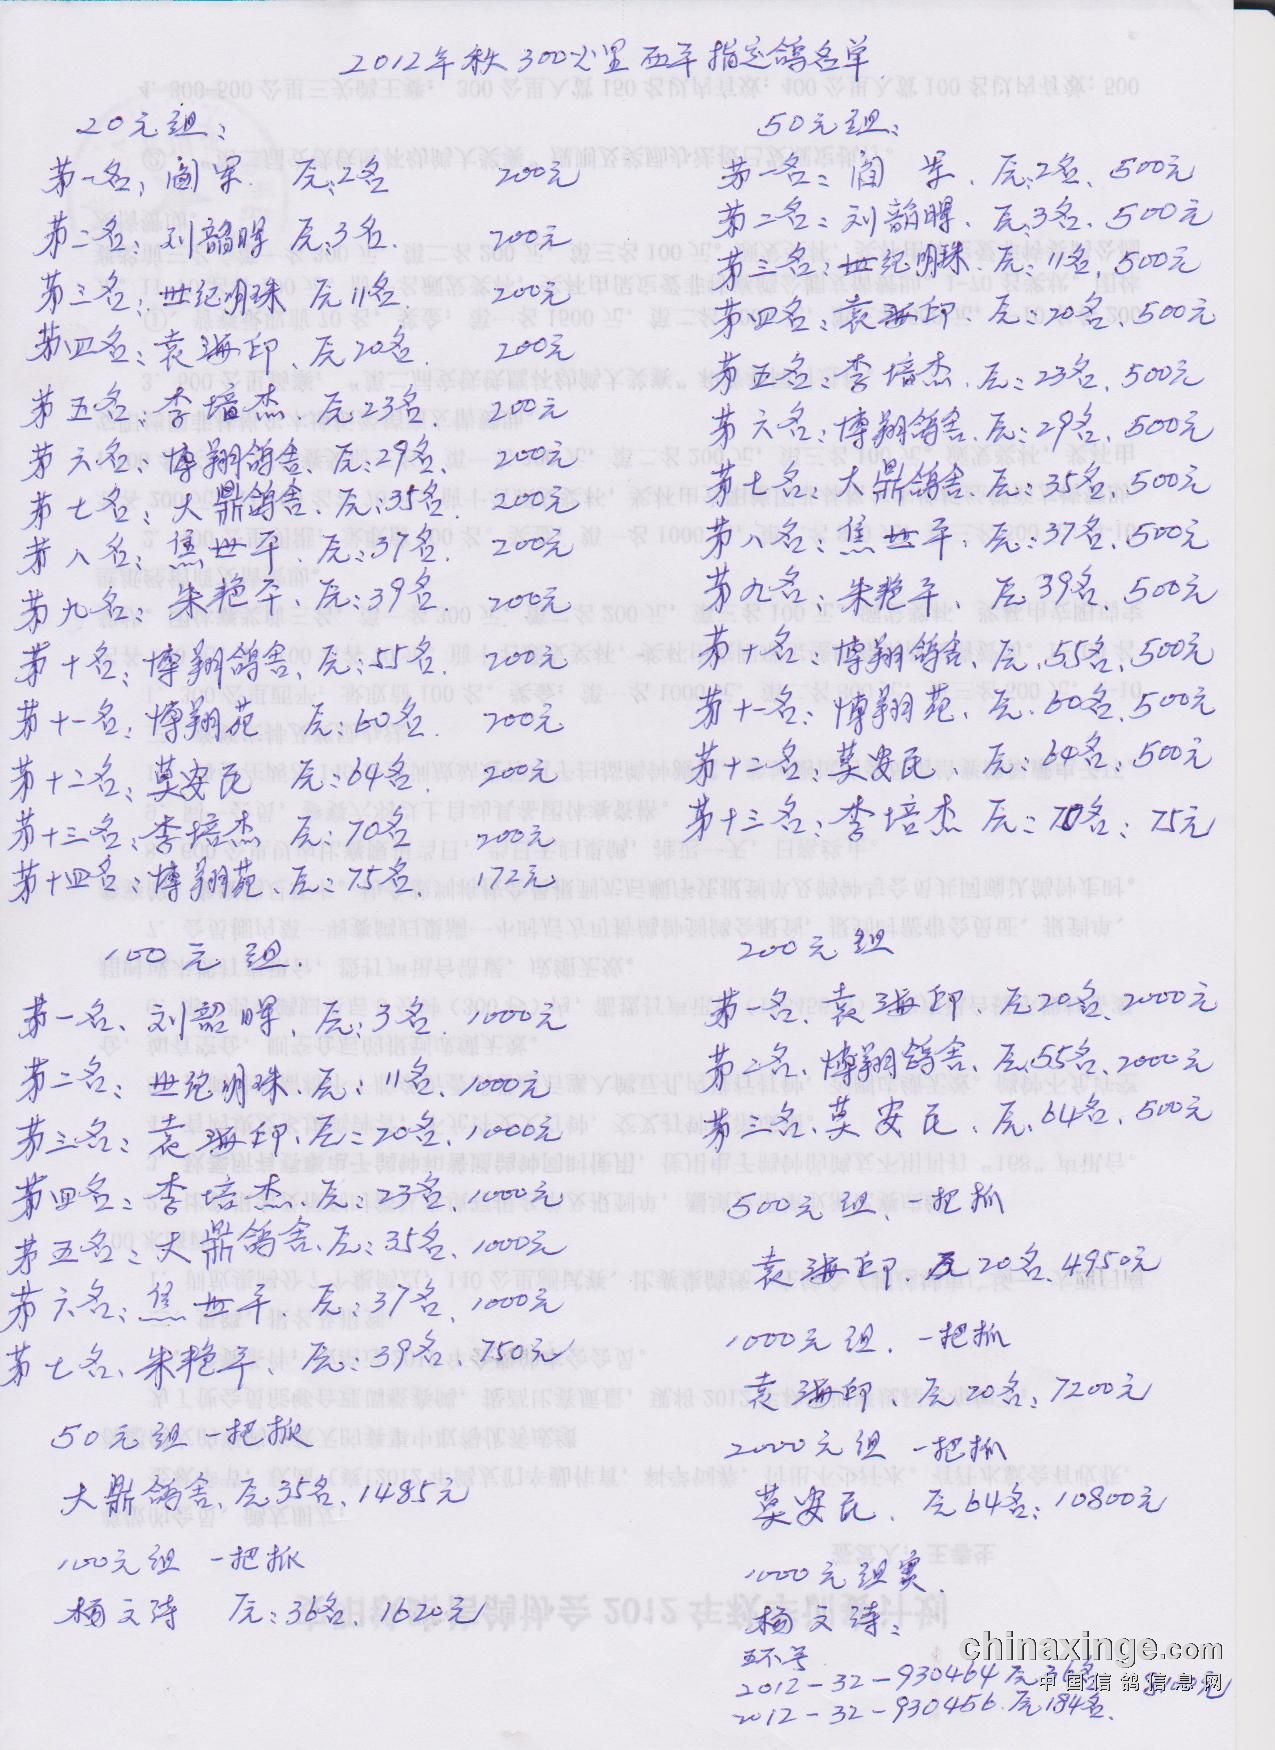 2012年秋300公里西平指定鸽名单
20元组:
第一名: 阎军. 厌:2名 200元
第二名: 刘韶晖 厌:3名. 200元
第三名: 世纪明珠 厌11名. 200元
第四名: 袁海印. 厌20名. 200元
第五名: 李培杰. 厌:23名. 200元
第六名: 博翔鸽舍. 厌:29名. 200元
第七名: 大鼎鸽舍. 厌:35名 200元
第八名: 焦世平. 厌:37名. 200元
第九名: 朱艳平. 厌:39名. 200元
第十名: 博翔鸽舍. 厌:55名. 200元
第十一名: 博翔苑 厌:60名. 200元
第十二名: 莫安民 厌:64名. 200元
第十三名: 李培杰 厌:70名 200元
第十四名: 博翔苑. 厌:75名. 172元
50元组:
第一名: 阎 军. 厌:2名. 500元
第二名: 刘韶晖. 厌:3名. 500元
第三名: 世纪明珠. 厌:11名. 500元
第四名: 袁海印. 厌:20名. 500元
第五名: 李培杰. 厌:23名. 500元
第六名: 博翔鸽舍. 厌:29名. 500元
第七名: 大鼎鸽舍. 厌:35名. 500元
第八名: 焦世平. 厌:37名. 500元
第九名: 朱艳平. 厌39名. 500元
第十名: 博翔鸽舍. 厌.55名. 500元
第十一名: 博翔苑. 厌.60名. 500元
第十二名: 莫安民. 厌:64名. 500元
第十三名: 李培杰 厌:70名: 75元
100元组.
第一名. 刘韶晖. 厌:3名. 1000元
第二名: 世纪明珠. 厌:11名. 1000元
第三名: 袁海印. 厌:20名. 1000元
第四名: 李培杰. 厌:23名. 1000元
第五名: 大鼎鸽舍. 厌:35名. 1000元
第六名: 焦世平. 厌:37名. 1000元
第七名. 朱艳平. 厌:39名. 750元
50元组一把抓
大鼎鸽舍. 厌35名. 1485元
100元组 一把抓
杨文涛 厌:36名. 1620元
200元组
第一名. 袁海印. 厌.20名. 2000元
第二名. 博翔鸽舍. 厌.55名. 2000元
第三名. 莫安民. 厌.64名. 500元
500元组. 一把抓
袁海印. 厌20名. 4950元
1000元组. 一把抓
袁海印. 厌20名: 7200元
2000元组 一把抓
莫安民. 厌64名: 10800元
1000元组
杨文涛:
环号
2012-32-930464 厌36名
2012-32-930456. 厌184名.
chinaxinge.com
中国信鸽信息网